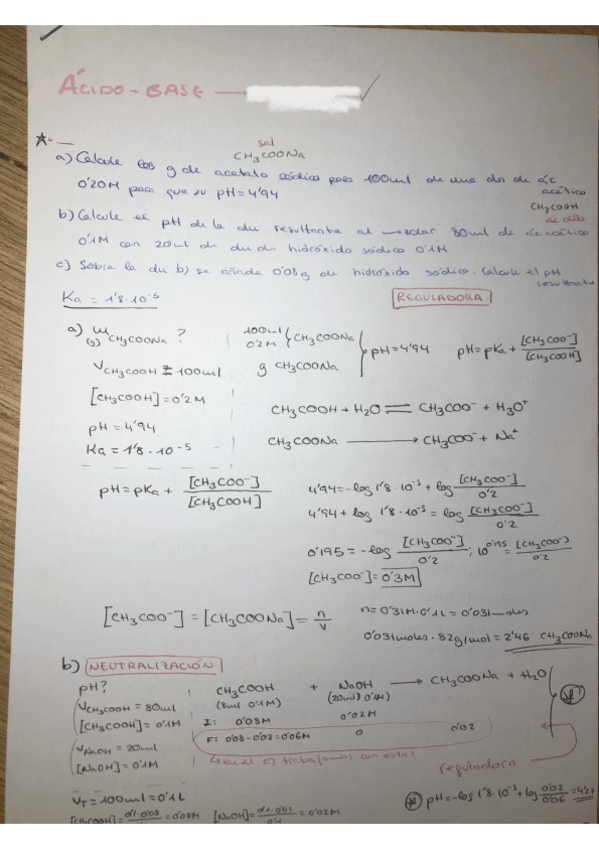 ÁCIDO-BASE →
sal
CH₃COONa
a) Calcule los g de acetato sódico para 100ml de una dn de ác
0'20M para que su pH=4'94
acético
CH₃COOH
ác débil
b) Calcule el pH de la du resultante al mezclar 80ml de ác acético
0'1M con 20ml de du de hidróxido sódico 0'1M
c) Sobre la du b) se añade 0'08g de hidróxido sódico. Calcule el pH
resultante
Ka = 1'8·10⁻⁵
REGULADORA
a) m CH₃COONa ?
(g)
V CH₃COOH = 100ml
[CH₃COOH] = 0'2M
pH = 4'94
Ka = 1'8·10⁻⁵
100ml
0'2M { CH₃COONa
g CH₃COONa
pH=4'94
pH = pKa + [CH₃COO⁻]/[CH₃COOH]
CH₃COOH + H₂O ⇌ CH₃COO⁻ + H₃O⁺
CH₃COONa → CH₃COO⁻ + Na⁺
pH = pKa + [CH₃COO⁻]/[CH₃COOH]
4'94 = -log 1'8·10⁻⁵ + log [CH₃COO⁻]/0'2
4'94 + log 1'8·10⁻⁵ = log [CH₃COO⁻]/0'2
0'195 = -log [CH₃COO⁻]/0'2 ; 10^0'195 = [CH₃COO⁻]/0'2
[CH₃COO⁻] = 0'3M
[CH₃COO⁻] = [CH₃COONa] = n/V
n = 0'31M·0'1L = 0'031moles
0'031moles · 82g/mol = 2'46 CH₃COONa
b) NEUTRALIZACIÓN
pH?
V CH₃COOH = 80ml
[CH₃COOH] = 0'1M
V NaOH = 20ml
[NaOH] = 0'1M
V_T = 100ml = 0'1L
CH₃COOH + NaOH → CH₃COONa + H₂O
(8ml 0'1M) (20ml 0'1M)
I: 0'08M 0'02M
F: 0'08-0'02=0'06M 0 0'02
↳ en el c) trabajamos con esta!
reguladora
pH = -log 1'8·10⁻⁵ + log 0'02/0'06 = 4'27
[CH₃COOH] = 0'1·0'08/0'1 = 0'08M [NaOH] = 0'1·0'02/0'1 = 0'02M